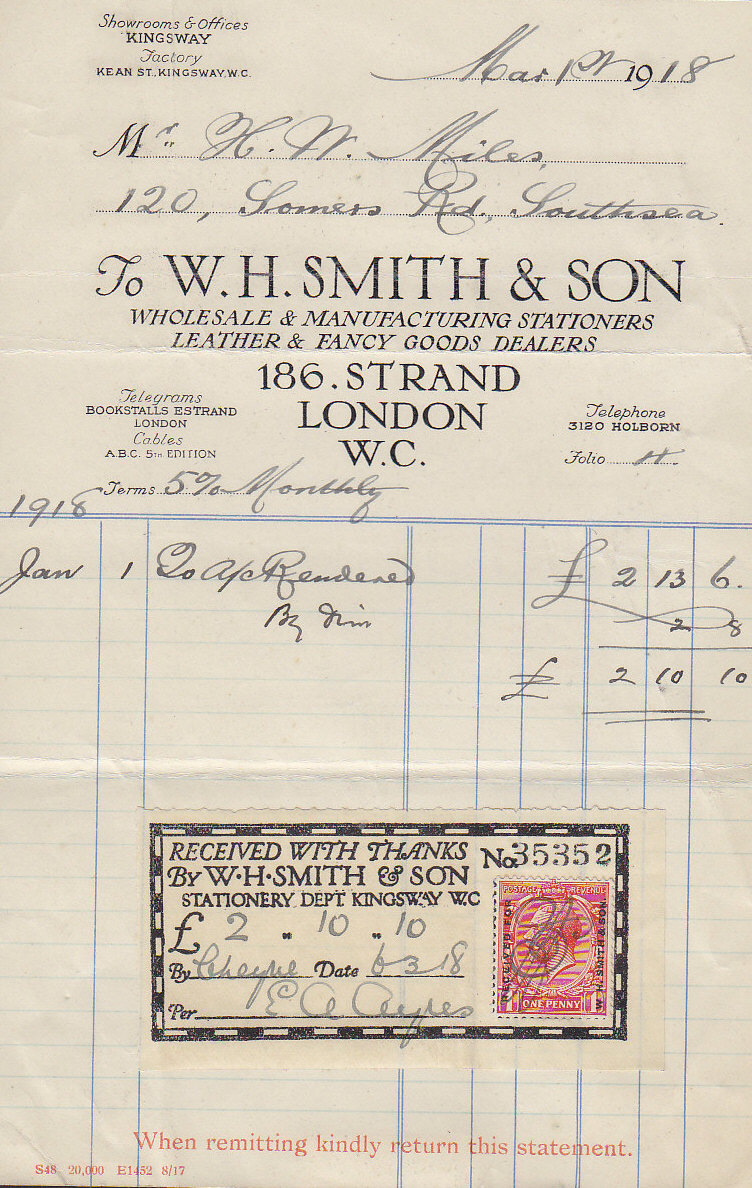 Showrooms & Offices
KINGSWAY
Factory
KEAN ST. KINGSWAY. W.C.
Mar 1st 1918
Mr. H. W. Miles,
120, Somers Rd, Southsea.
To W. H. SMITH & SON
WHOLESALE & MANUFACTURING STATIONERS
LEATHER & FANCY GOODS DEALERS
186. STRAND
LONDON
W.C.
Telegrams
BOOKSTALLS ESTRAND
LONDON
Cables
A.B.C. 5TH EDITION
Telephone
3120 HOLBORN
Folio
Terms 5% Monthly
1918
Jan 1 To A/c Rendered £ 2 13 6.
By 2 8
£ 2 10 10
RECEIVED WITH THANKS
By W·H·SMITH & SON
STATIONERY DEPT KINGSWAY WC
No 35352
£ 2 " 10 " 10
By Cheque Date 6 3 18
Per E A
POSTAGE REVENUE
RECEIVED FOR
W. H. SMITH & SON
ONE PENNY
When remitting kindly return this statement.
S48 20,000 E1452 8/17